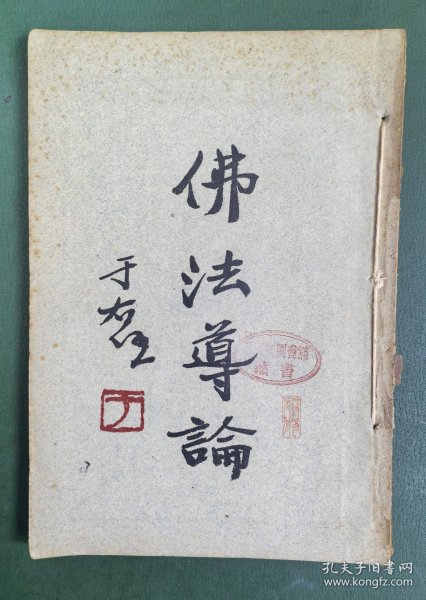 佛法導論
于右任
于
孔夫子旧书网
www.kongfz.com